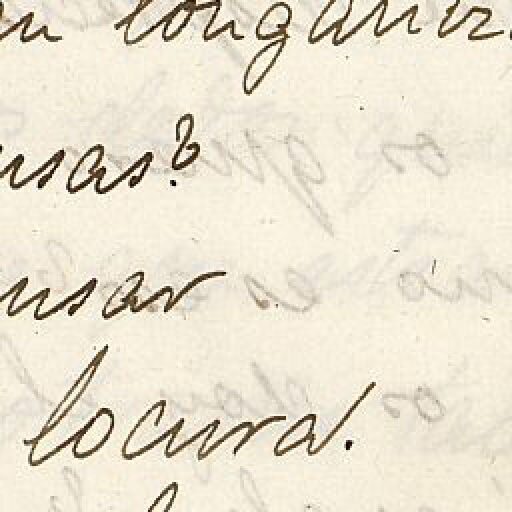 longaniz
usas?
usar
locura!